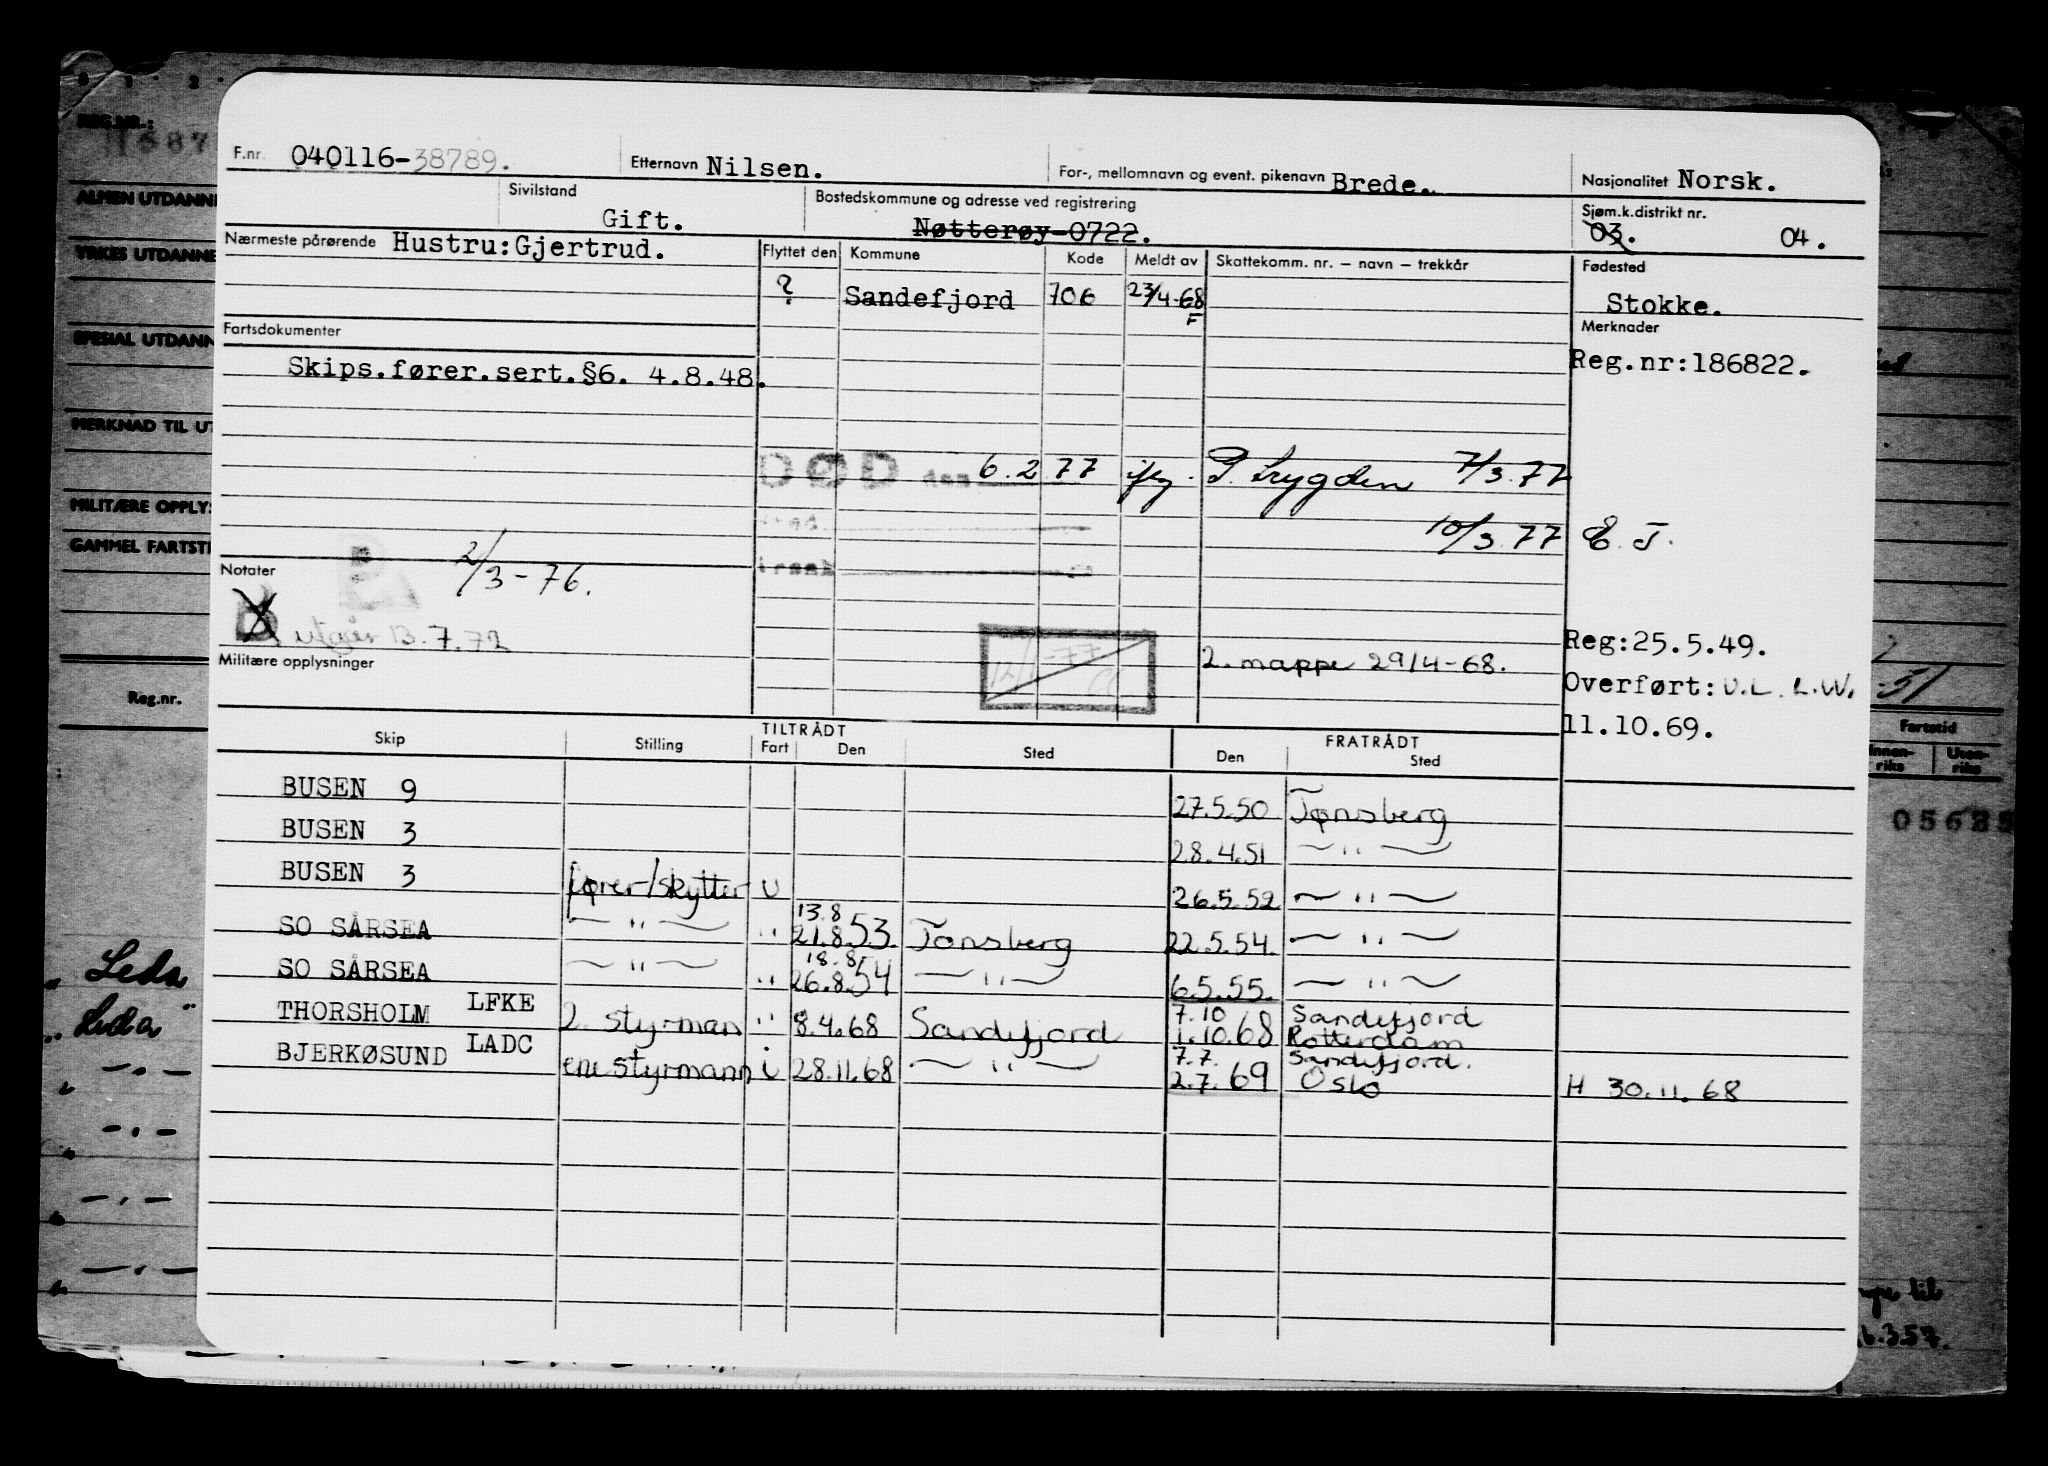 F.nr. 040116-38789. Etternavn Nilsen. For-, mellomnavn og event. pikenavn Brede. Nasjonalitet Norsk.
Sivilstand Gift. Bostedskommune og adresse ved registrering Nøtterøy-0722. Sjøm.k.distrikt nr. 03. 04.
Nærmeste pårørende Hustru:Gjertrud. Flyttet den Kommune Kode Meldt av Skattekomm. nr. – navn – trekkår Fødested
? Sandefjord 706 23/4-68 F Stokke.
Fartsdokumenter Merknader
Skips.fører.sert.§6. 4.8.48. Reg.nr:186822.
DØD 6.2 77 P. trygden 7/3.77
10/3.77 E. J.
Notater 2/3-76.
utgår 13.7.72 Reg:25.5.49.
Militære opplysninger 2. mappe 29/4-68.
Overført: U.L. L.W.
11.10.69.
Skip Stilling TILTRÅDT Fart Den Sted FRATRÅDT Den Sted
BUSEN 9 27.5.50 Tønsberg
BUSEN 3 28.4.51 — " —
BUSEN 3 fører/skytter u 26.5.52 — " —
SO SÅRSEA — " — " 13.8 21.8.53 Tønsberg 22.5.54. — " —
SO SÅRSEA — " — " 18.8 26.8.54 — " — 6.5.55. — " —
THORSHOLM LFKE 2. styrman " 8.4.68 Sandefjord 7.10 1.10.68 Sandefjord Rotterdam
BJERKØSUND LADC ene styrmann i 28.11.68 — " — 7.7. 2.7.69 Sandefjord. Oslo H 30.11.68
REG.NR.:
ALMEN UTDANNE
YRKES UTDANNE
SPESIAL UTDANN
MERKNAD TIL UT
MILITÆRE OPPLYS
GAMMEL FARTSTI
Reg.nr.
Leda
" Leda "
Fartstid
Innen-riks Uten-riks